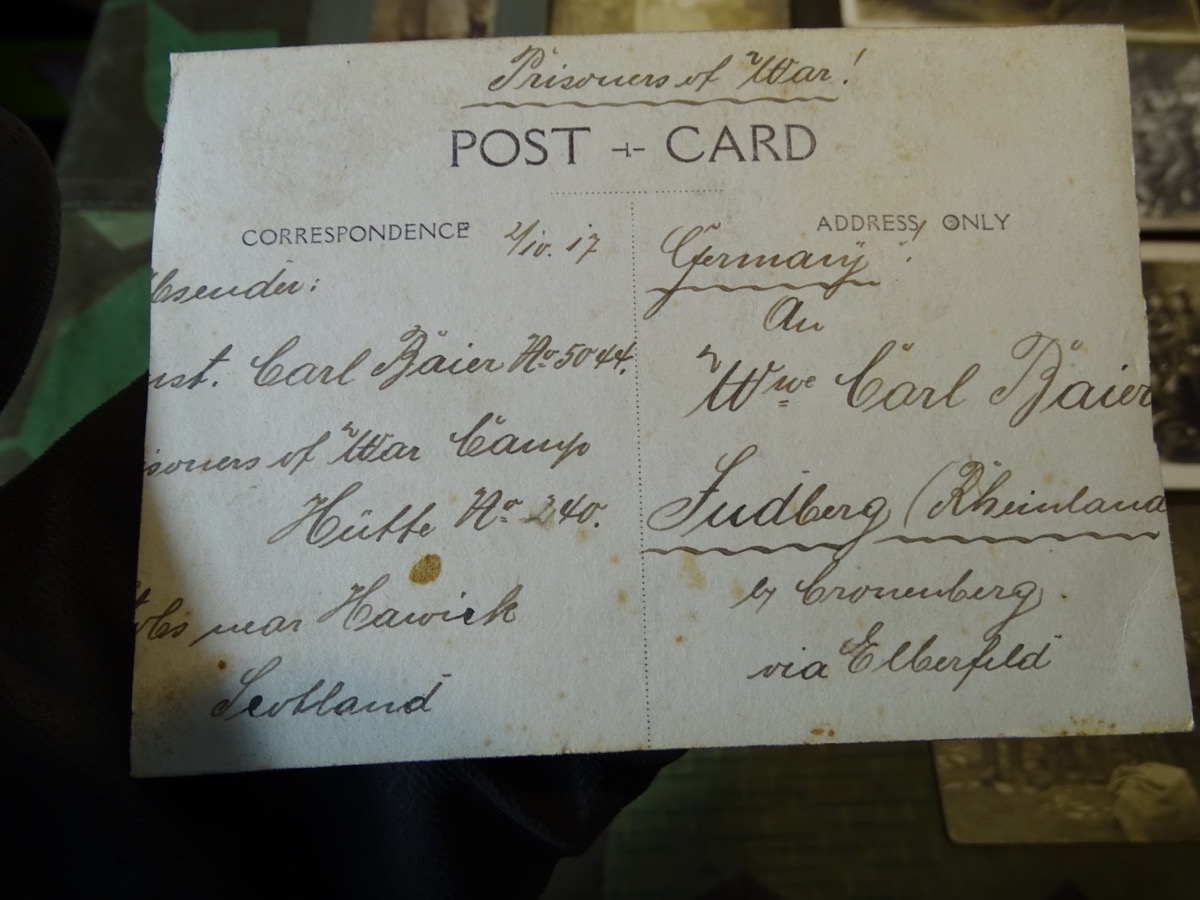 Prisoners of War!
POST CARD
CORRESPONDENCE
2/10.17
bsender:
ust. Carl Baier No 5044.
isoners of War Camp
Hütte No 240.
obs near Hawick
Scotland
ADDRESS ONLY
Germany!
An
Wwe Carl Baier
Sudberg (Rheinland
by Cronenberg
via Elberfeld